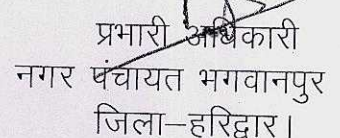 प्रभारी अधिकारी
नगर पंचायत भगवानपुर
जिला–हरिद्वार।